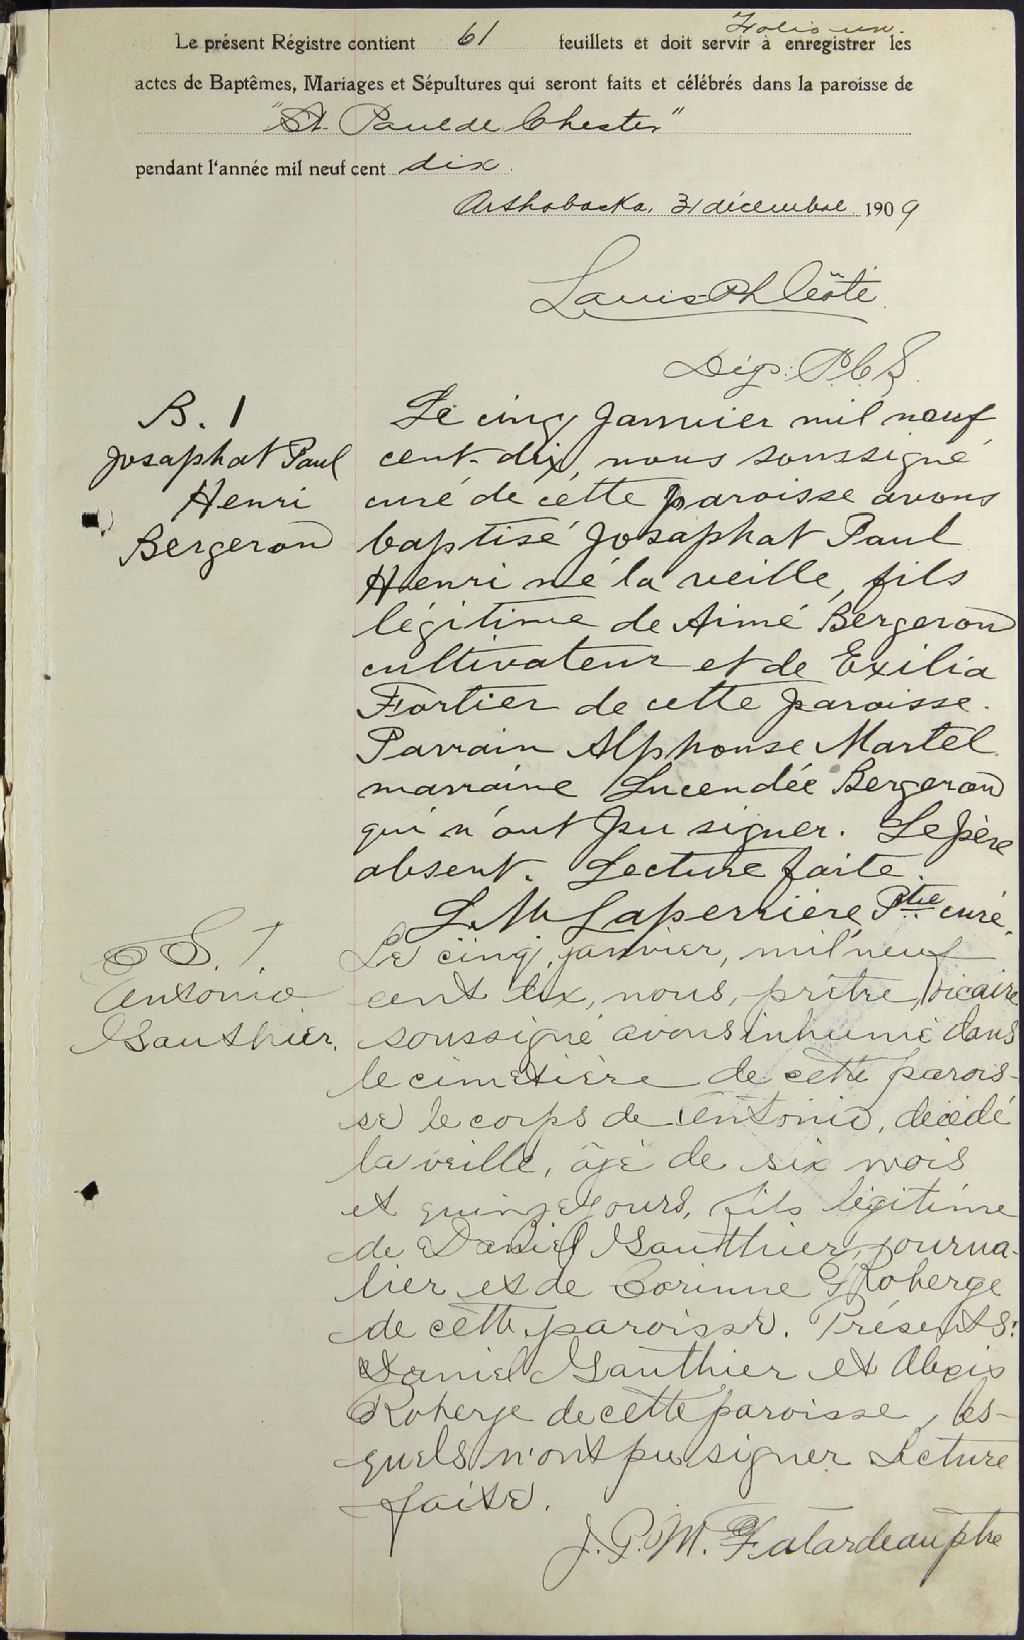 Folio un.
Le présent Régistre contient 61 feuillets et doit servir à enregistrer les
actes de Baptêmes, Mariages et Sépultures qui seront faits et célébrés dans la paroisse de
"St. Paul de Chester"
pendant l'année mil neuf cent dix
Arthabaska, 31 décembre 1909
Louis Ph Côté
Dép. P.C.S.
B. 1
Josaphat Paul
Henri
Bergeron
Le cinq Janvier mil neuf
cent-dix, nous soussigné
curé de cette paroisse avons
baptisé Josaphat Paul
Henri né la veille, fils
légitime de Aimé Bergeron
cultivateur et de Exilia
Fortier de cette paroisse.
Parrain Alphonse Martel
marraine Lucendée Bergeron
qui n'ont pu signer. Le père
absent. Lecture faite.
L. M. Laperrière, Ptre curé.
S. 1.
Antonio
Gauthier.
Le cinq, janvier, mil neuf
cent dix, nous, prêtre, vicaire
soussigné avons inhumé dans
le cimetière de cette parois-
se le corps de Antonio, décédé
la veille, âgé de six mois
et quinze jours, fils légitime
de Daniel Gauthier, journa-
lier et de Corinne Roberge
de cette paroisse. Présents:
Daniel Gauthier et Alexis
Roberge de cette paroisse, les-
quels n'ont pu signer Lecture
faite.
J. P. M. Fatardeau ptre